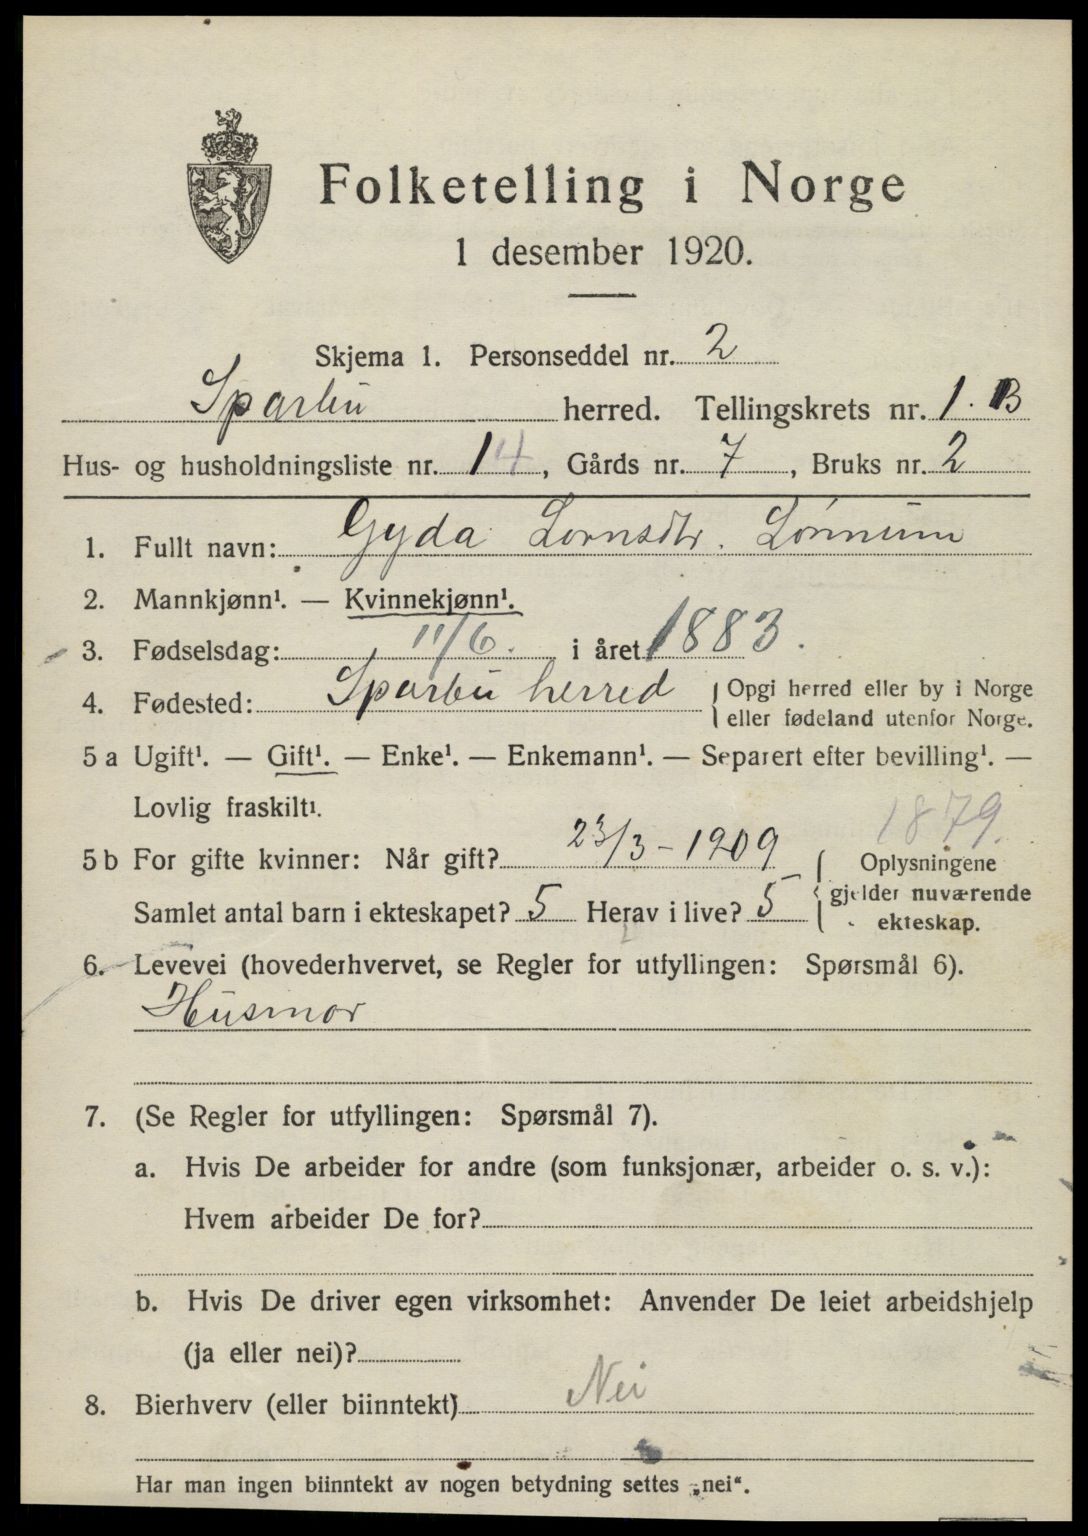 Folketelling i Norge
1 desember 1920.
Skjema 1. Personseddel nr. 2
Sparbu herred. Tellingskrets nr. 1. B
Hus- og husholdningsliste nr. 14, Gårds nr. 7, Bruks nr. 2
1. Fullt navn: Gyda Lornsdtr. Lønnum
2. Mannkjønn¹. — Kvinnekjønn¹.
3. Fødselsdag: 11/6. i året 1883.
4. Fødested: Sparbu herred { Opgi herred eller by i Norge
eller fødeland utenfor Norge.
5 a Ugift¹. — Gift¹. — Enke¹. — Enkemann¹. — Separert efter bevilling¹. —
Lovlig fraskilt¹.
1879.
5 b For gifte kvinner: Når gift? 23/3 - 1909 { Oplysningene
gjelder nuværende
Samlet antal barn i ekteskapet? 5 Herav i live? 5
ekteskap.
6. Levevei (hovederhvervet, se Regler for utfyllingen: Spørsmål 6).
Husmor
7. (Se Regler for utfyllingen: Spørsmål 7).
a. Hvis De arbeider for andre (som funksjonær, arbeider o. s. v.):
Hvem arbeider De for?
b. Hvis De driver egen virksomhet: Anvender De leiet arbeidshjelp
(ja eller nei)?
8. Bierhverv (eller biinntekt) Nei
Har man ingen biinntekt av nogen betydning settes „nei“.